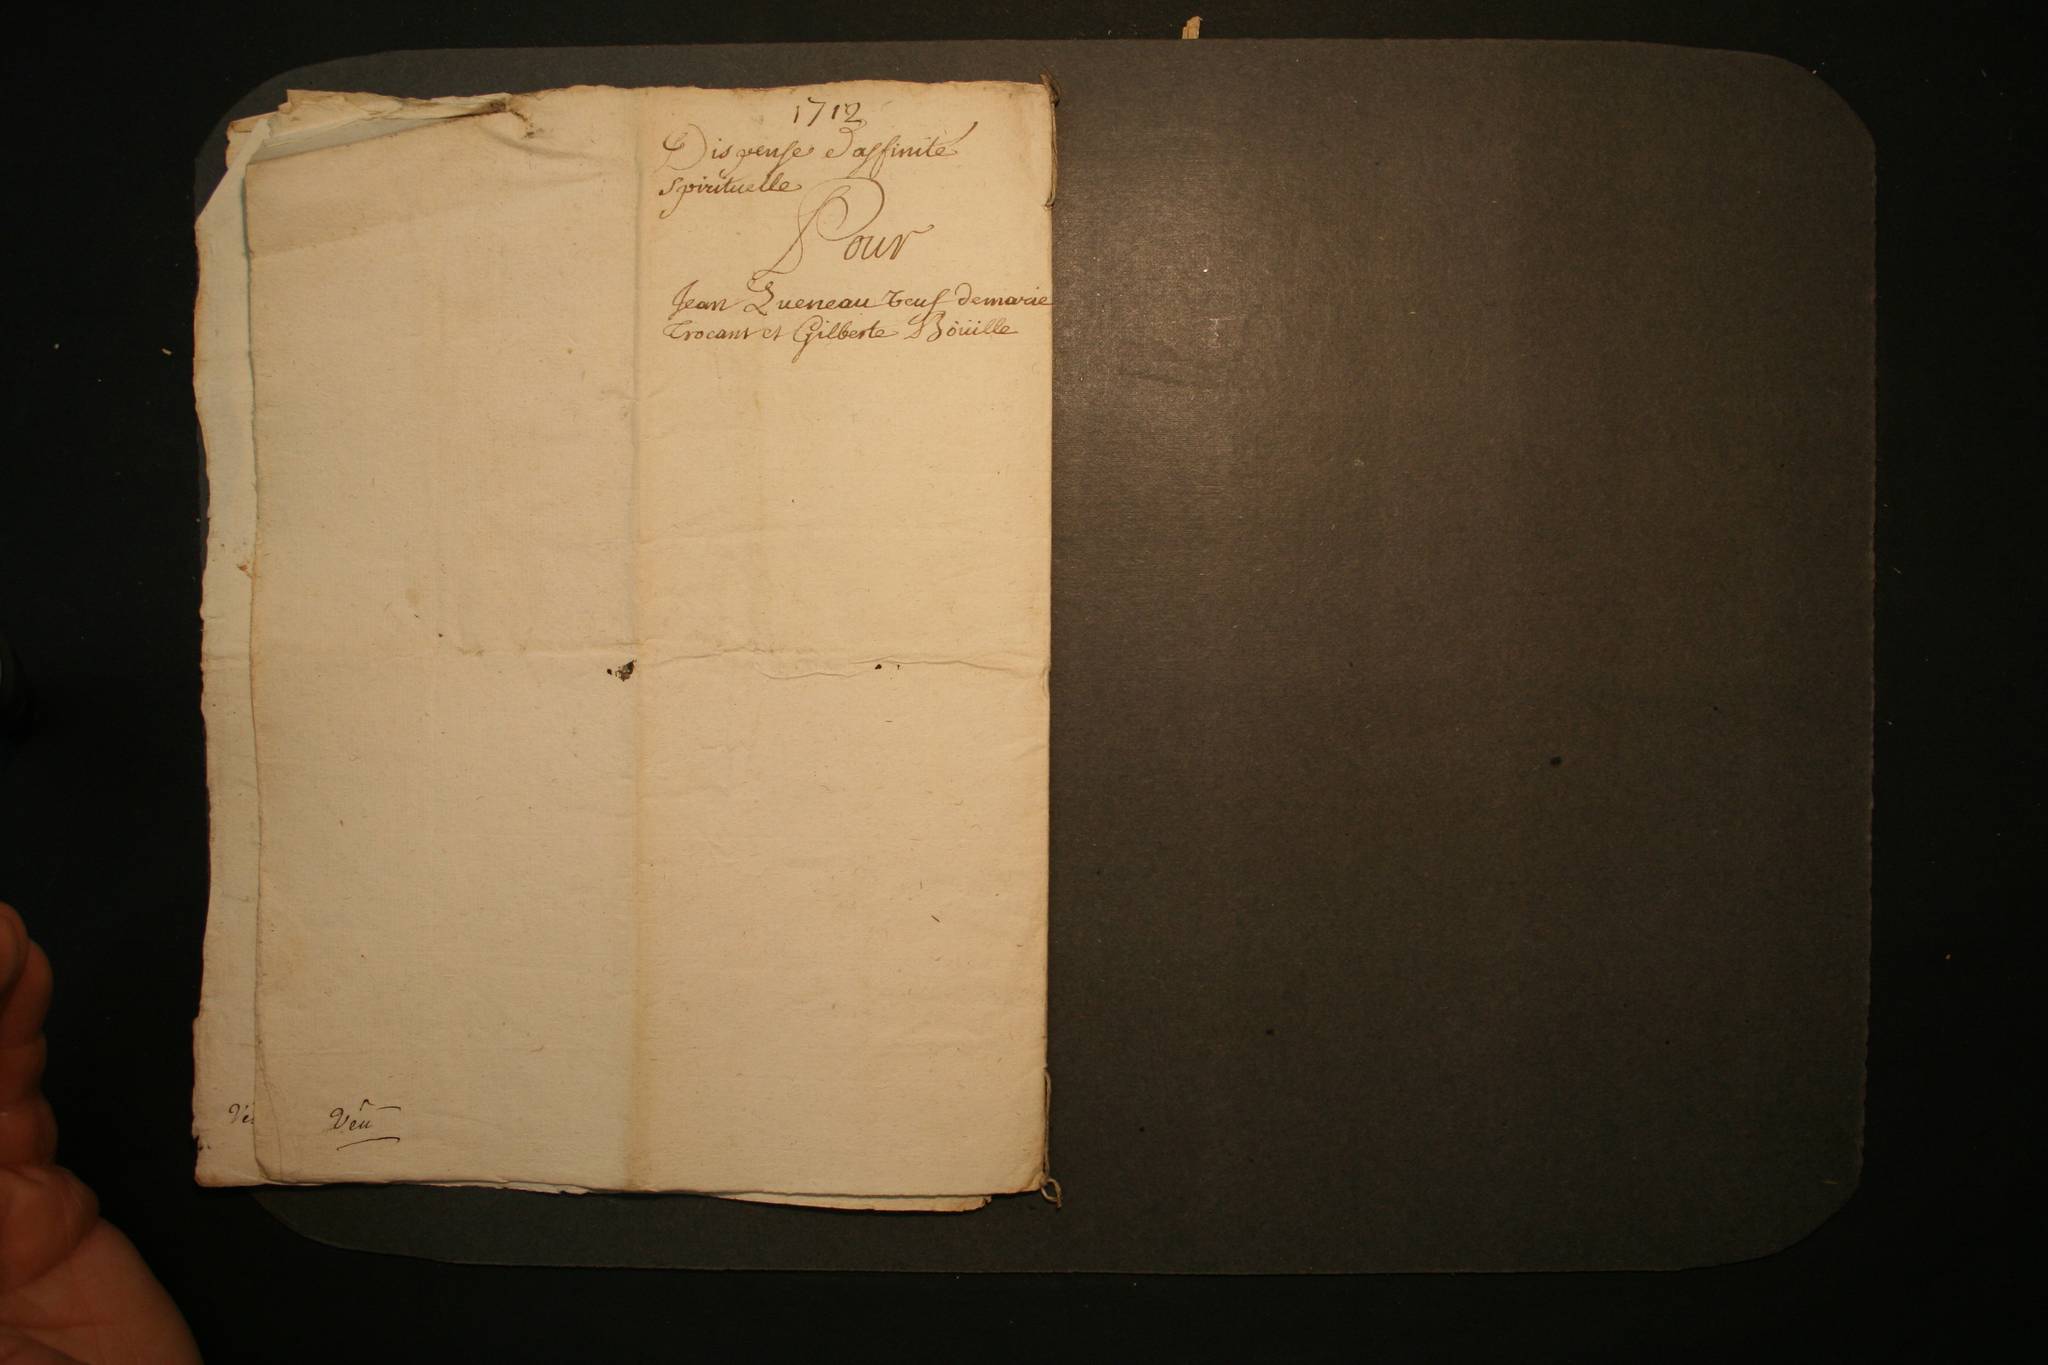 1712
Dispense d'affinité
spirituelle
Pour
Jean Queneau veuf de marie
trocant et Gilberte Boüille
Vêu